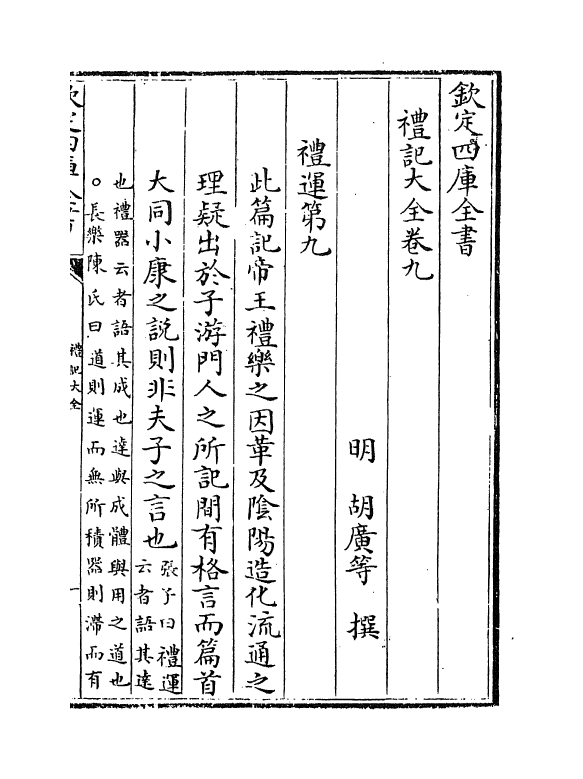 欽定四庫全書
禮記大全卷九
明 胡廣等 撰
禮運第九
此篇記帝王禮樂之因革及陰陽造化流通之
理疑出於子游門人之所記間有格言而篇首
大同小康之說則非夫子之言也張子曰禮運
云者語其達
也禮器云者語其成也達與成體與用之道也
○長樂陳氏曰道則運而無所積器則滯而有
欽定四庫全書
禮記大全
一